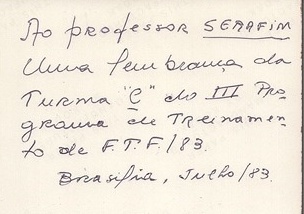 Ao professor SERAFIM
Uma lembrança da
Turma "C" do III Pro-
grama de Treinamen-
to de F.T.F./83.
Brasília, Julho/83.